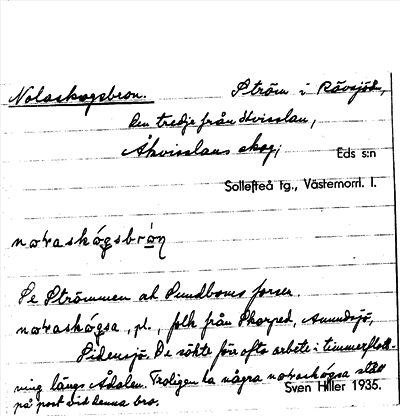 Nolaskogsbron. Ström i Rävsjön,
Den tredje från Kvisslan,
Åkvisslans skog,
Eds s:n
Sollefteå tg., Västernorrl. l.
noraskógsbrón
Se Strömmen at Sundboms forsen.
noraskógsa, pl., folk från Skorped, Anundsjö,
Sidensjö. De sökte förr ofta arbete i timmerflott-
ning längs Ådalen. Troligen ha några noraskogsa stått
på post vid denna bro.
Sven Hiller 1935.